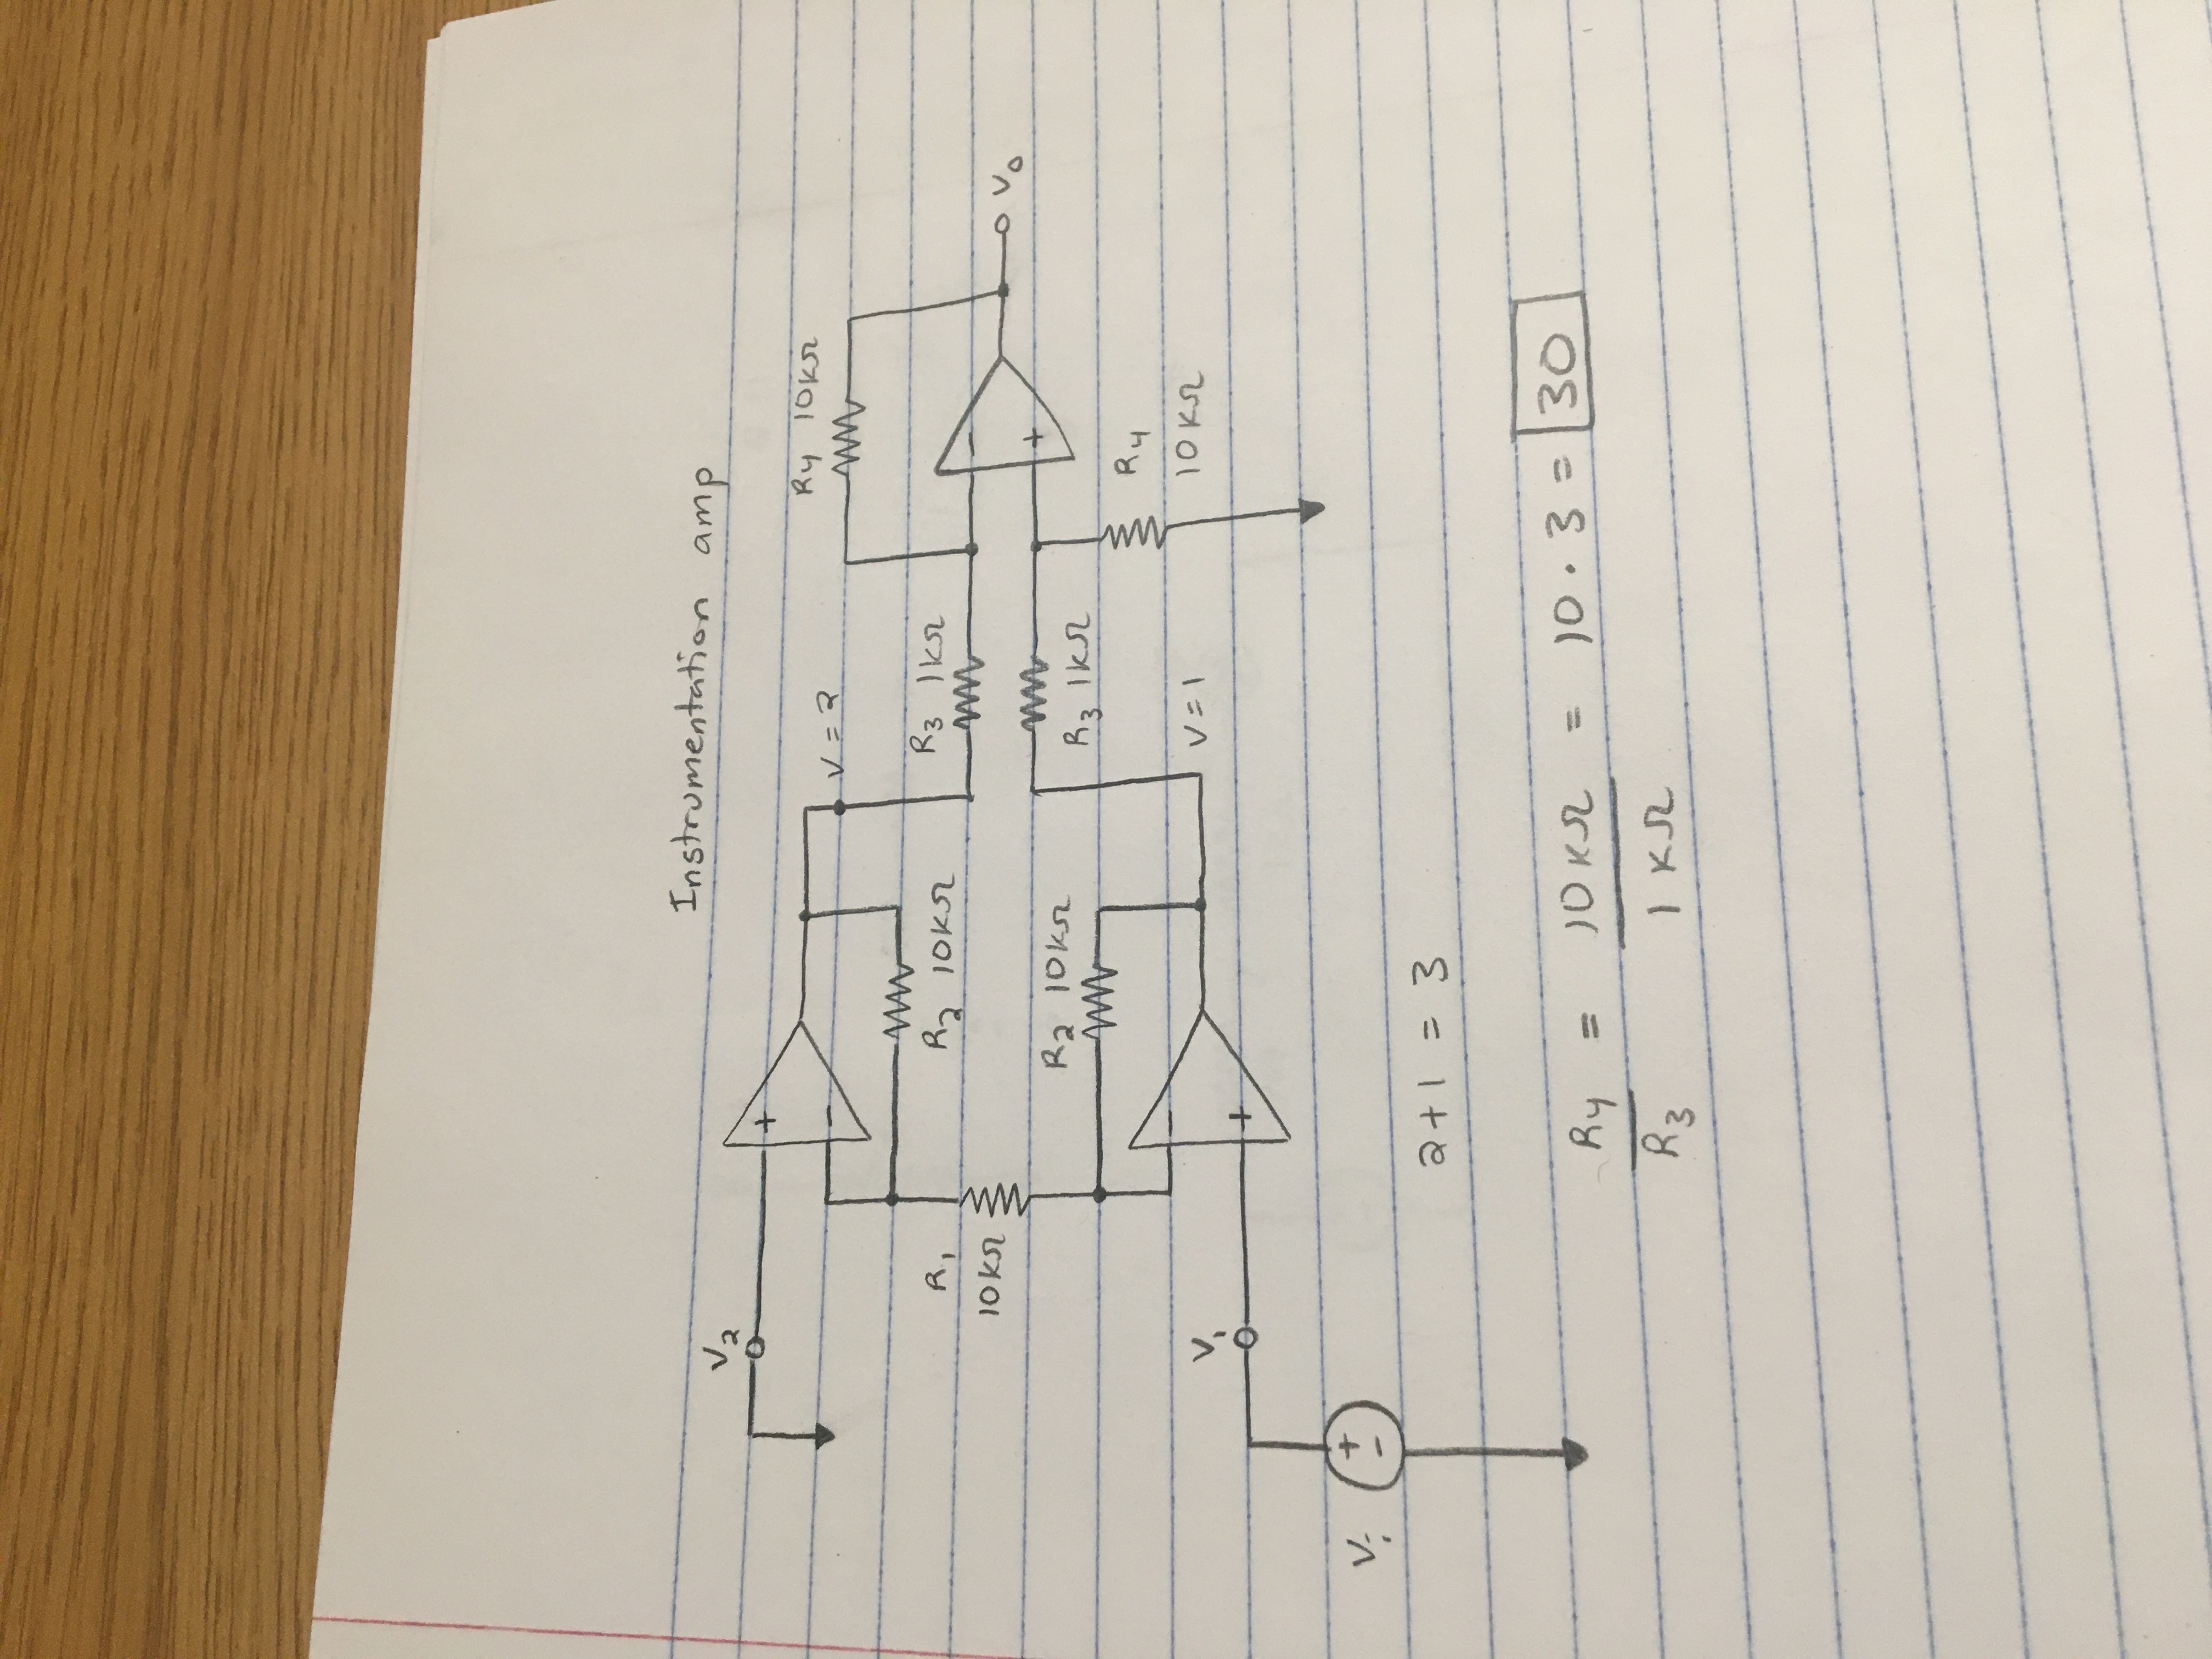 Instrumentation amp
V2
+
−
V = 2
R4 10kΩ
R2 10kΩ
R3 1kΩ
R1
10kΩ
−
+
Vo
R2 10kΩ
R3 1kΩ
R4
10kΩ
−
+
V = 1
V1
Vi
+
−
2+1 = 3
R4 = 10kΩ = 10 · 3 = 30
R3 1kΩ